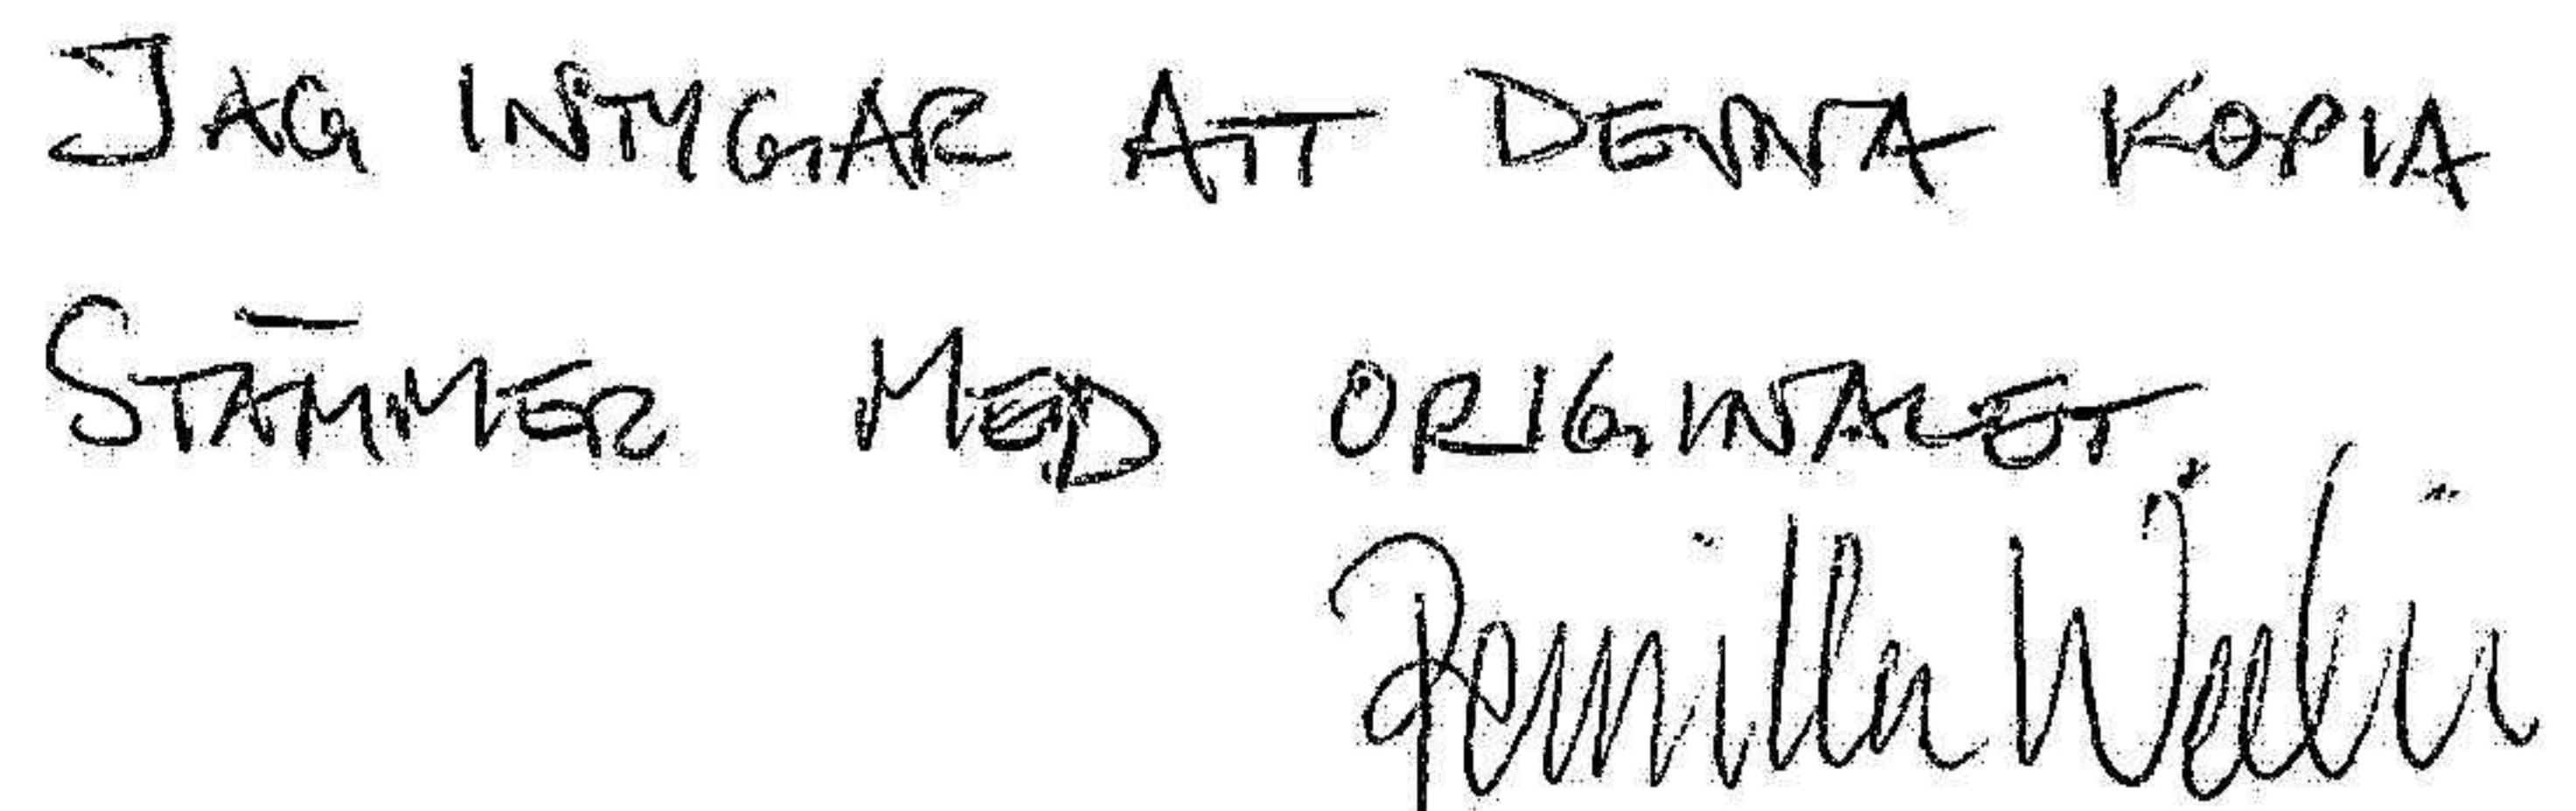 JAG INTYGAR ATT DENNA KOPIA
STÄMMER MED ORIGINALET
Pernilla